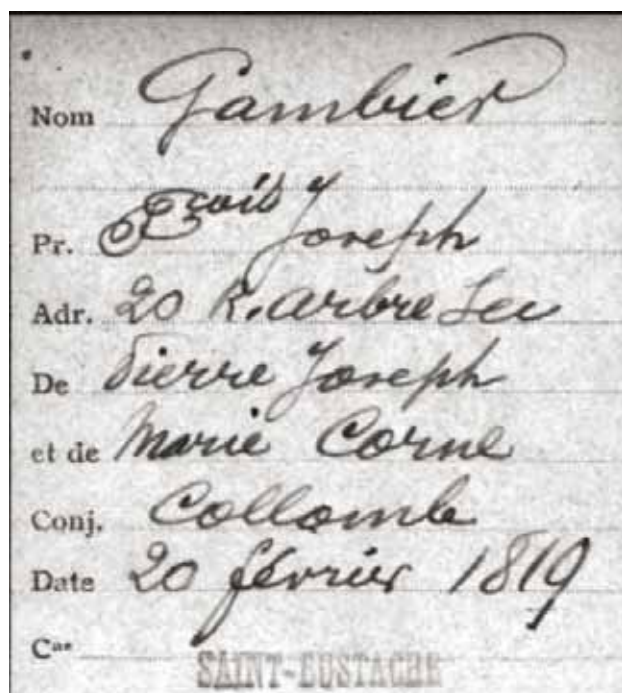 Nom Gambier
Pr. Fcois Joseph
Adr. 20 R. arbre Sec
De Pierre Joseph
et de Marie Corne
Conj. Collomb
Date 20 février 1819
Cas
SAINT-EUSTACHE